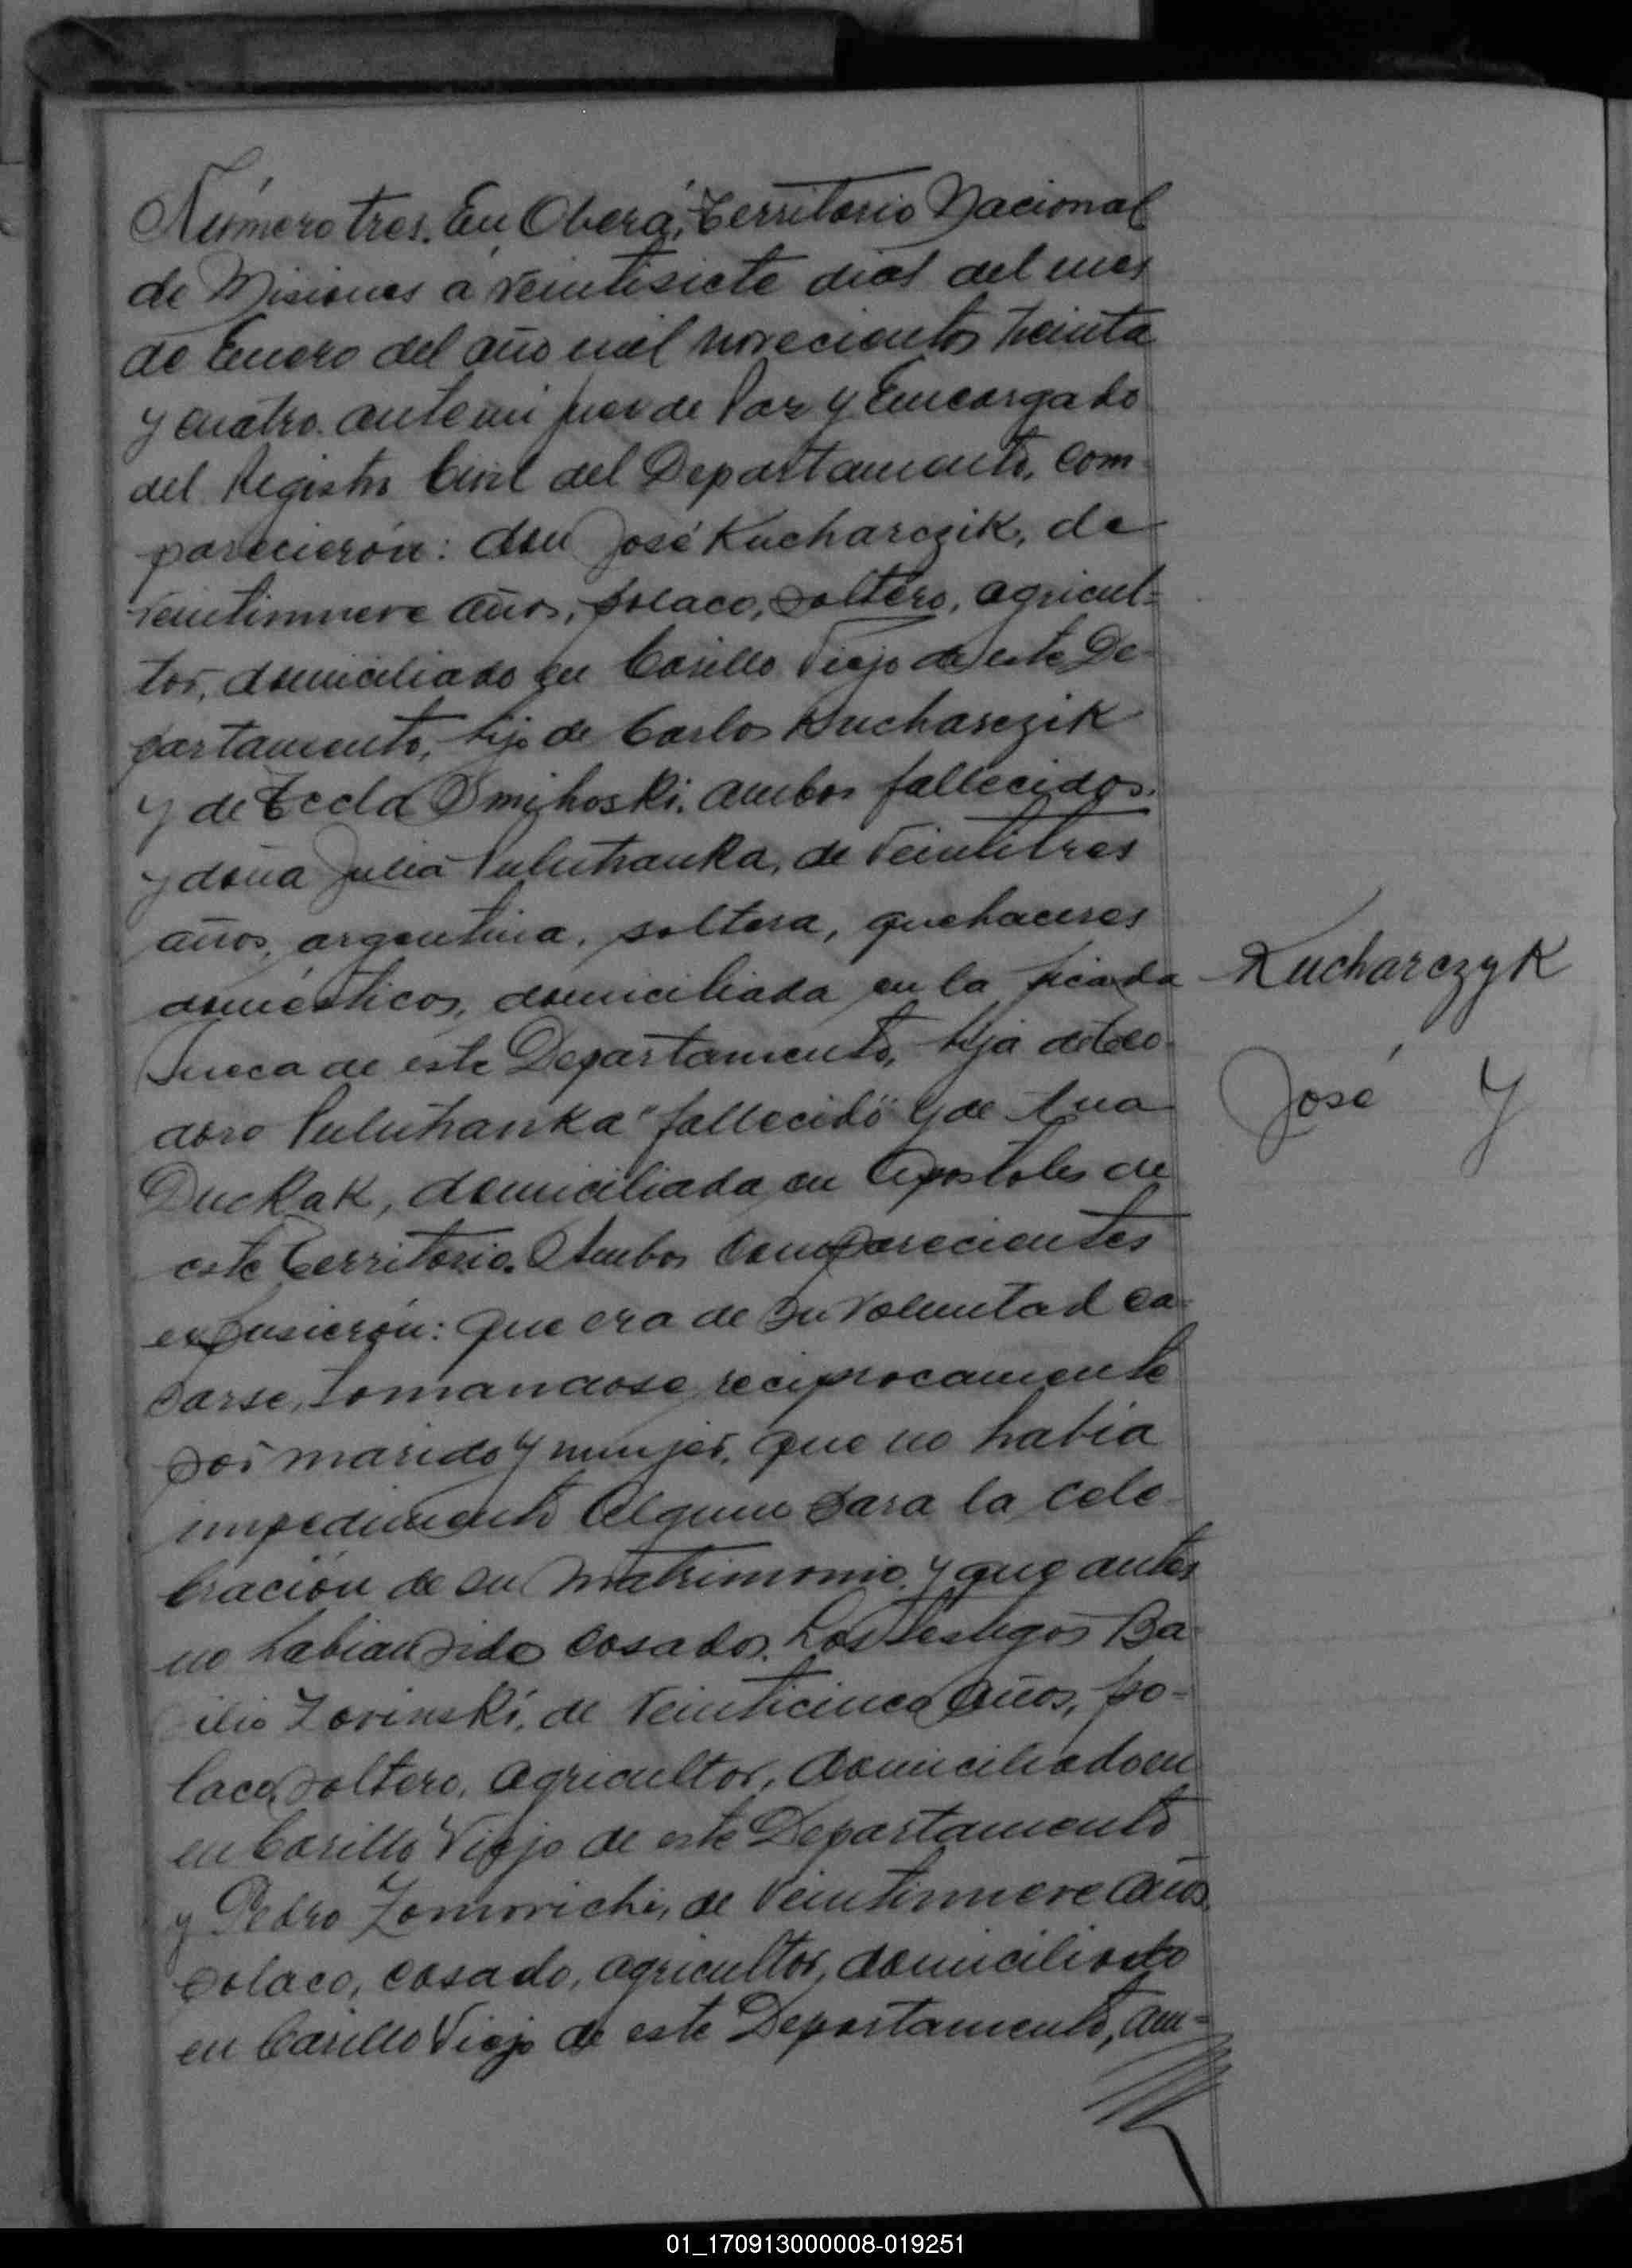 Número tres. En Oberá, Territorio Nacional
de Misiones a veintisiete dias del mes
de Enero del año mil novecientos treinta
y cuatro. ante mi Juez de Paz y Encargado
del Registro Civil del Departamento, com-
parecieron: don José Kucharczik, de
veintinueve años, polaco, soltero, agricul-
tor, domiciliado en Cerillo Viejo de este De-
partamento, hijo de Carlos Kucharczik
y de Tecla Smihoski, ambos fallecidos.
y doña Julia Puluhanka, de veintitres
años, argentina, soltera, quehaceres
domésticos, domiciliada en la picada
Sueca de este Departamento, hija de Teo-
doro Puluhanka "fallecido" y de Ana
Duckak, domiciliada en Apostoles de
este Territorio. Ambos comparecientes
expusieron: que era de su voluntad ca-
sarse, tomandose reciprocamente
por marido y mujer, que no habia
impedimento alguno para la cele-
bración de su matrimonio, y que antes
no habian sido casados. Los testigos Ba-
silio Zovinski, de veinticinco años, po-
laco, soltero, agricultor, domiciliado en
en Cerillo Viejo de este Departamento
y Pedro Zomvichi, de veintinueve años,
polaco, casado, agricultor, domiciliado
en Cerillo Viejo de este Departamento, am-
Kucharczyk
José y
01_170913000008-019251